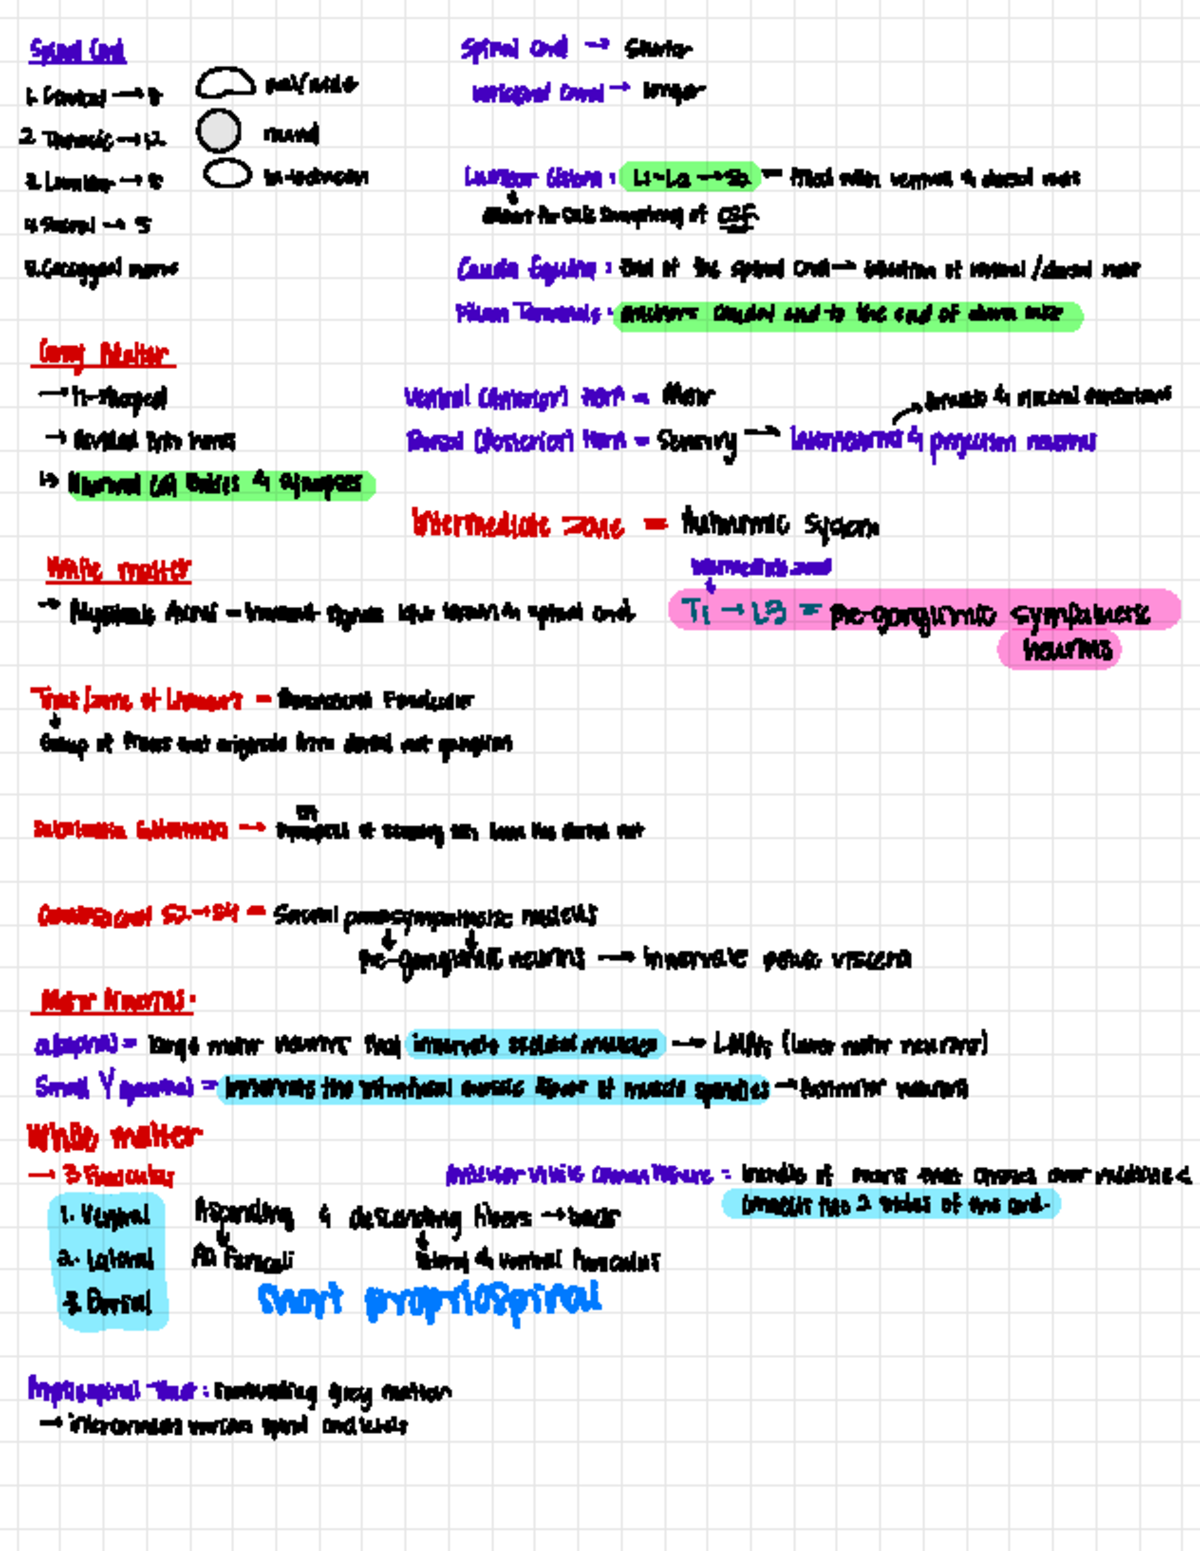 Spinal Cord
1. Cervical → 8
oval/wide
2. Thoracic → 12
round
3. Lumbar → 5
in-between
4. Sacral → 5
5. Coccygeal nerve
Spinal Cord → Shorter
Vertebral Canal → longer
Lumbar Cistern : L1-L2 → S2 — filled with ventral & dorsal roots
allows for safe sampling of CSF
Cauda Equina : End of the spinal cord → collection of ventral/dorsal root
Filum Terminale : anchors caudal end to the end of
Gray Matter
→ H-shaped
→ divided into horns
↳ Neuronal cell bodies & synapses
Ventral (Anterior) horn = Motor
Dorsal (Posterior) Horn = Sensory → Interneurons & projection neurons
→ somatic & visceral
Intermediate zone = Autonomic System
Intermediate zone
T1 → L3 = pre-ganglionic sympathetic neurons
White matter
→ Myelinated Axons - transmit signals btw brain & spinal cord
Tract/zone of Lissauer's = Dorsolateral Fasciculus
Group of fibers that originate from dorsal root ganglion
Substantia Gelatinosa →
of sensory
S2 → S4 = Sacral parasympathetic nucleus
Pre-ganglionic neurons → innervate pelvic viscera
Motor Neurons:
α(alpha) = large motor neurons that innervate skeletal muscles → LMNs (lower motor neurons)
Small γ (gamma) = innervates the intrafusal muscle fibers of muscle spindles → fusimotor neurons
White matter
→ 3 Funiculus
1. Ventral
2. Lateral
3. Dorsal
Ascending & descending fibers →
All Funiculi
lateral & ventral funiculus
Short propriospinal
Anterior White Commissure = bundle of axons that crosses over midline &
connects the 2 sides of the cord.
Propriospinal Tract : surrounding gray matter
→ interconnects various spinal cord levels